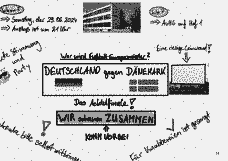 => Samstag, den 29.06.2024
=> Anstoß ist um 21 Uhr
Wer wird Fußball-Europameister?
Eine riesige Leinwand!
DEUTSCHLAND gegen DÄNEMARK
Das Achtelfinale!
WIR schauen ZUSAMMEN
KOMM VORBEI!
Party
Getränke bitte selbst mitbringen
Für Knabbereien ist gesorgt